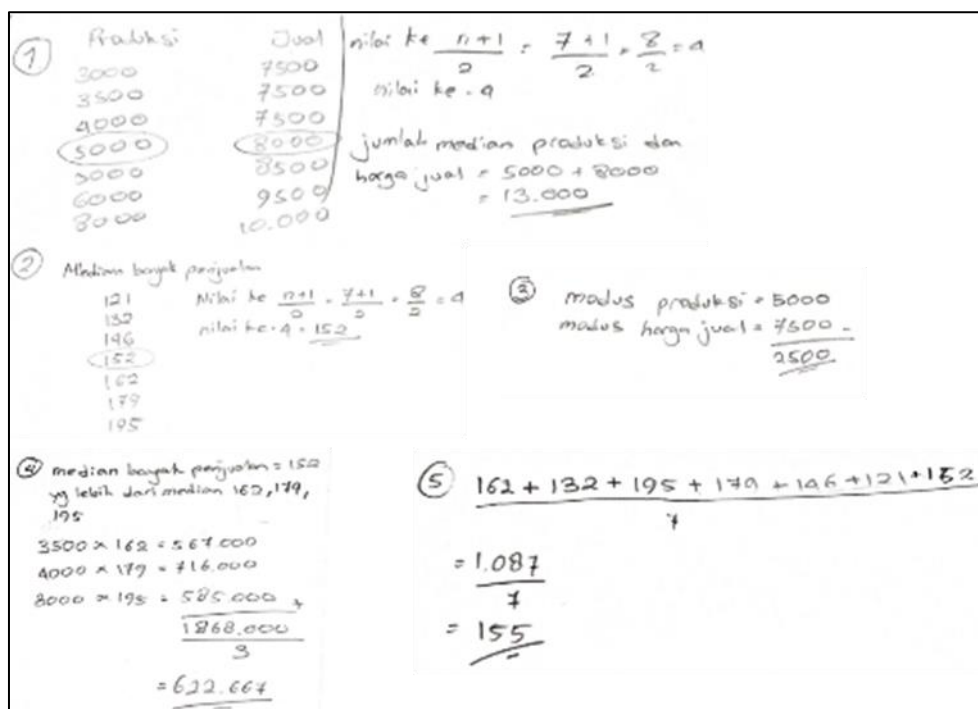 ① Produksi Jual
3000 7500
3500 7500
4000 7500
5000 8000
5000 8500
6000 9500
8000 10.000
nilai ke n+1/2 = 7+1/2 = 8/2 = 4
nilai ke-4
jumlah median produksi dan
harga jual = 5000 + 8000
= 13.000
② Median banyak penjualan
121
132
146
152
162
179
195
Nilai ke n+1/2 = 7+1/2 = 8/2 = 4
nilai ke-4 = 152
③ modus produksi = 5000
modus harga jual = 7500 -
2500
④ median banyak penjualan = 152
yg lebih dari median 162, 179,
195
3500 × 162 = 567.000
4000 × 179 = 716.000
3000 × 195 = 585.000 +
1868.000
3
= 622.667
⑤ 162 + 132 + 195 + 179 + 146 + 121 + 152
7
= 1.087
7
= 155